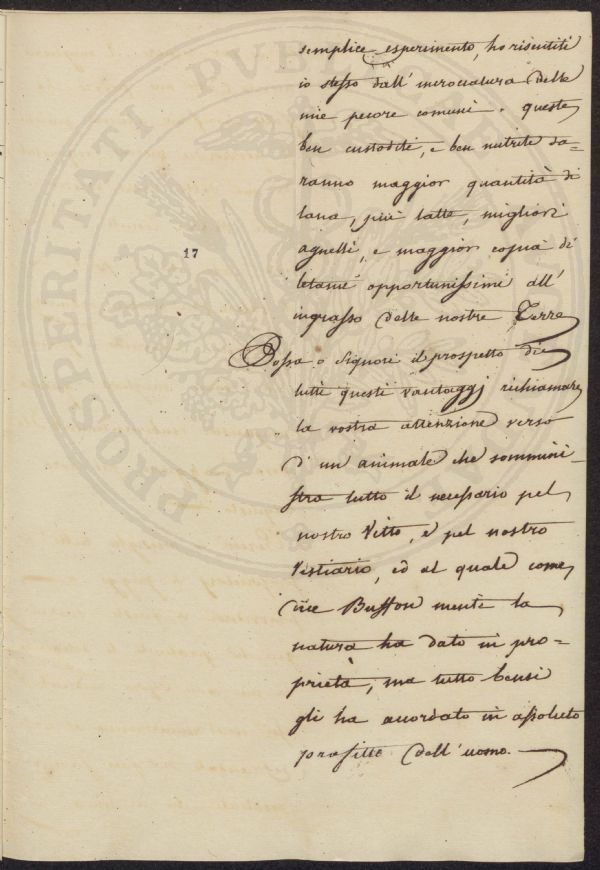 semplice esperimento, ho risentiti
io stesso dall' incrociatura delle
mie pecore comuni. queste
ben custodite, e ben nutrite da-
ranno maggior quantità di
lana, più latte, migliori
agnelli, e maggior copia di
letame opportunissimi all'
ingrasso delle nostre Terre
Possa o Signori il prospetto di
tutti questi vantaggj richiamare
la vostra attenzione verso
d' un animale che sommini-
stra tutto il necessario pel
nostro Vitto, e pel nostro
Vestiario, ed al quale come
dice Buffon niente la
natura ha dato in pro-
prietà, ma tutto bensi
gli ha accordato in assoluto
profitto dell' uomo.
17
PROSPERITATI PVBLICAE